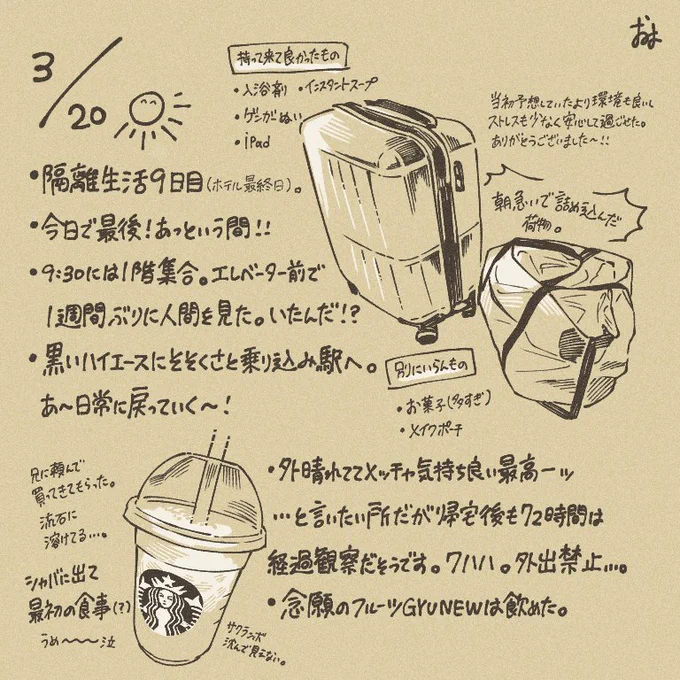 およ
3/20
持って来て良かったもの
・入浴剤 ・インスタントスープ
・ゲンガぬい
・iPad
当初予想していたより環境も良いし
ストレスも少なく安心して過ごせた。
ありがとうございました〜!!
・隔離生活9日目(ホテル最終日)。
・今日で最後!あっという間!!
・9:30には1階集合。エレベーター前で
1週間ぶりに人間を見た。いたんだ!?
・黒いハイエースにそそくさと乗り込み駅へ。
あ〜日常に戻っていく〜!
朝急いで詰め込んだ
荷物。
別にいらんもの
・お菓子(多すぎ)
・メイクポーチ
兄に頼んで
買ってきてもらった。
流石に
溶けてる…。
シャバに出て
最初の食事(?)
うめ〜〜〜泣
サクランボ
沈んで見えない。
・外晴れててメッチャ気持ち良い最高ーッ
…と言いたい所だが帰宅後も72時間は
経過観察だそうです。ワハハ。外出禁止…。
・念願のフルーツGYUNEWは飲めた。